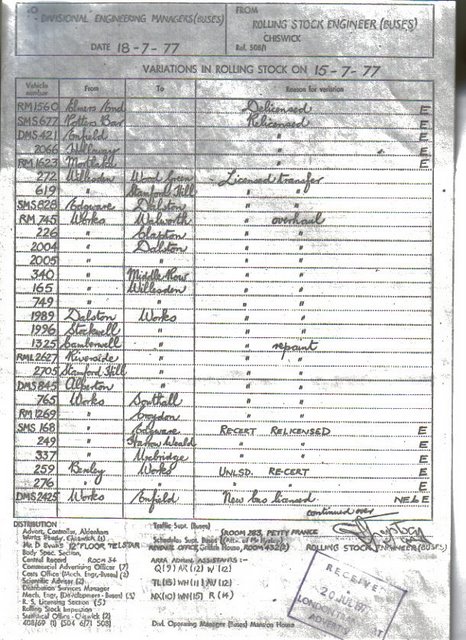 TO
DIVISIONAL ENGINEERING MANAGERS (BUSES)
DATE 18-7-77
FROM
ROLLING STOCK ENGINEER (BUSES)
CHISWICK
Ref. 508/1
VARIATIONS IN ROLLING STOCK ON 15-7-77
Vehicle number From To Reason for variation
RM1560 Elmers End Delicensed E
SMS677 Potters Bar Relicensed E
DMS421 Enfield " E
2066 Holloway " E
RM1623 Mortlake " E
272 Willesden Wood Green Licensed transfer
619 " Stamford Hill " "
SMS828 Edgware Dalston " "
RM745 Works Walworth " overhaul
226 " Clapton " "
2004 " Dalston " "
2005 " " " "
340 " Middle Row " "
165 " Willesden " "
749 " " " "
1989 Dalston Works " "
1996 Stockwell " " "
1325 Camberwell " " repaint
RML2627 Riverside " " "
2705 Stamford Hill " " "
DMS845 Alperton " " "
765 Works Southall " "
RM1269 " Croydon " "
SMS168 " Edgware RECERT RELICENSED E
249 " Harrow Weald " " E
337 " Uxbridge " " E
259 Bexley Works UNLSD. RE-CERT E
276 " " " " E
DMS2425 Works Enfield New bus licensed NE.L.E
continued over
ROLLING STOCK ENGINEER (BUSES)
DISTRIBUTION
Advert. Controller, Aldenham
Works Ready, Chiswick (1)
Mr D Evans 12th FLOOR TELSTAR
Body Spec. Section
Control Record ROOM 34
Commercial Advertising Officer (7)
Costs Office (Mech. Engr-Buses) (2)
Scientific Adviser (2)
Distribution Services Manager
Mech. Engr. (Development - Buses) (3)
R. S. Licensing Section (5)
Rolling Stock Inspection
Statistical Office - Chiswick (2)
Traffic Supt. (Buses) ROOM 283, PETTY FRANCE
Schedules Supt. (Buses)
REVENUE OFFICE, Griffith House, ROOM 432(2)
AREA ADMIN. ASSISTANTS:-
Divl. Operating Manager (Buses) Mansion House
RECEIVED
20 JUL 1977